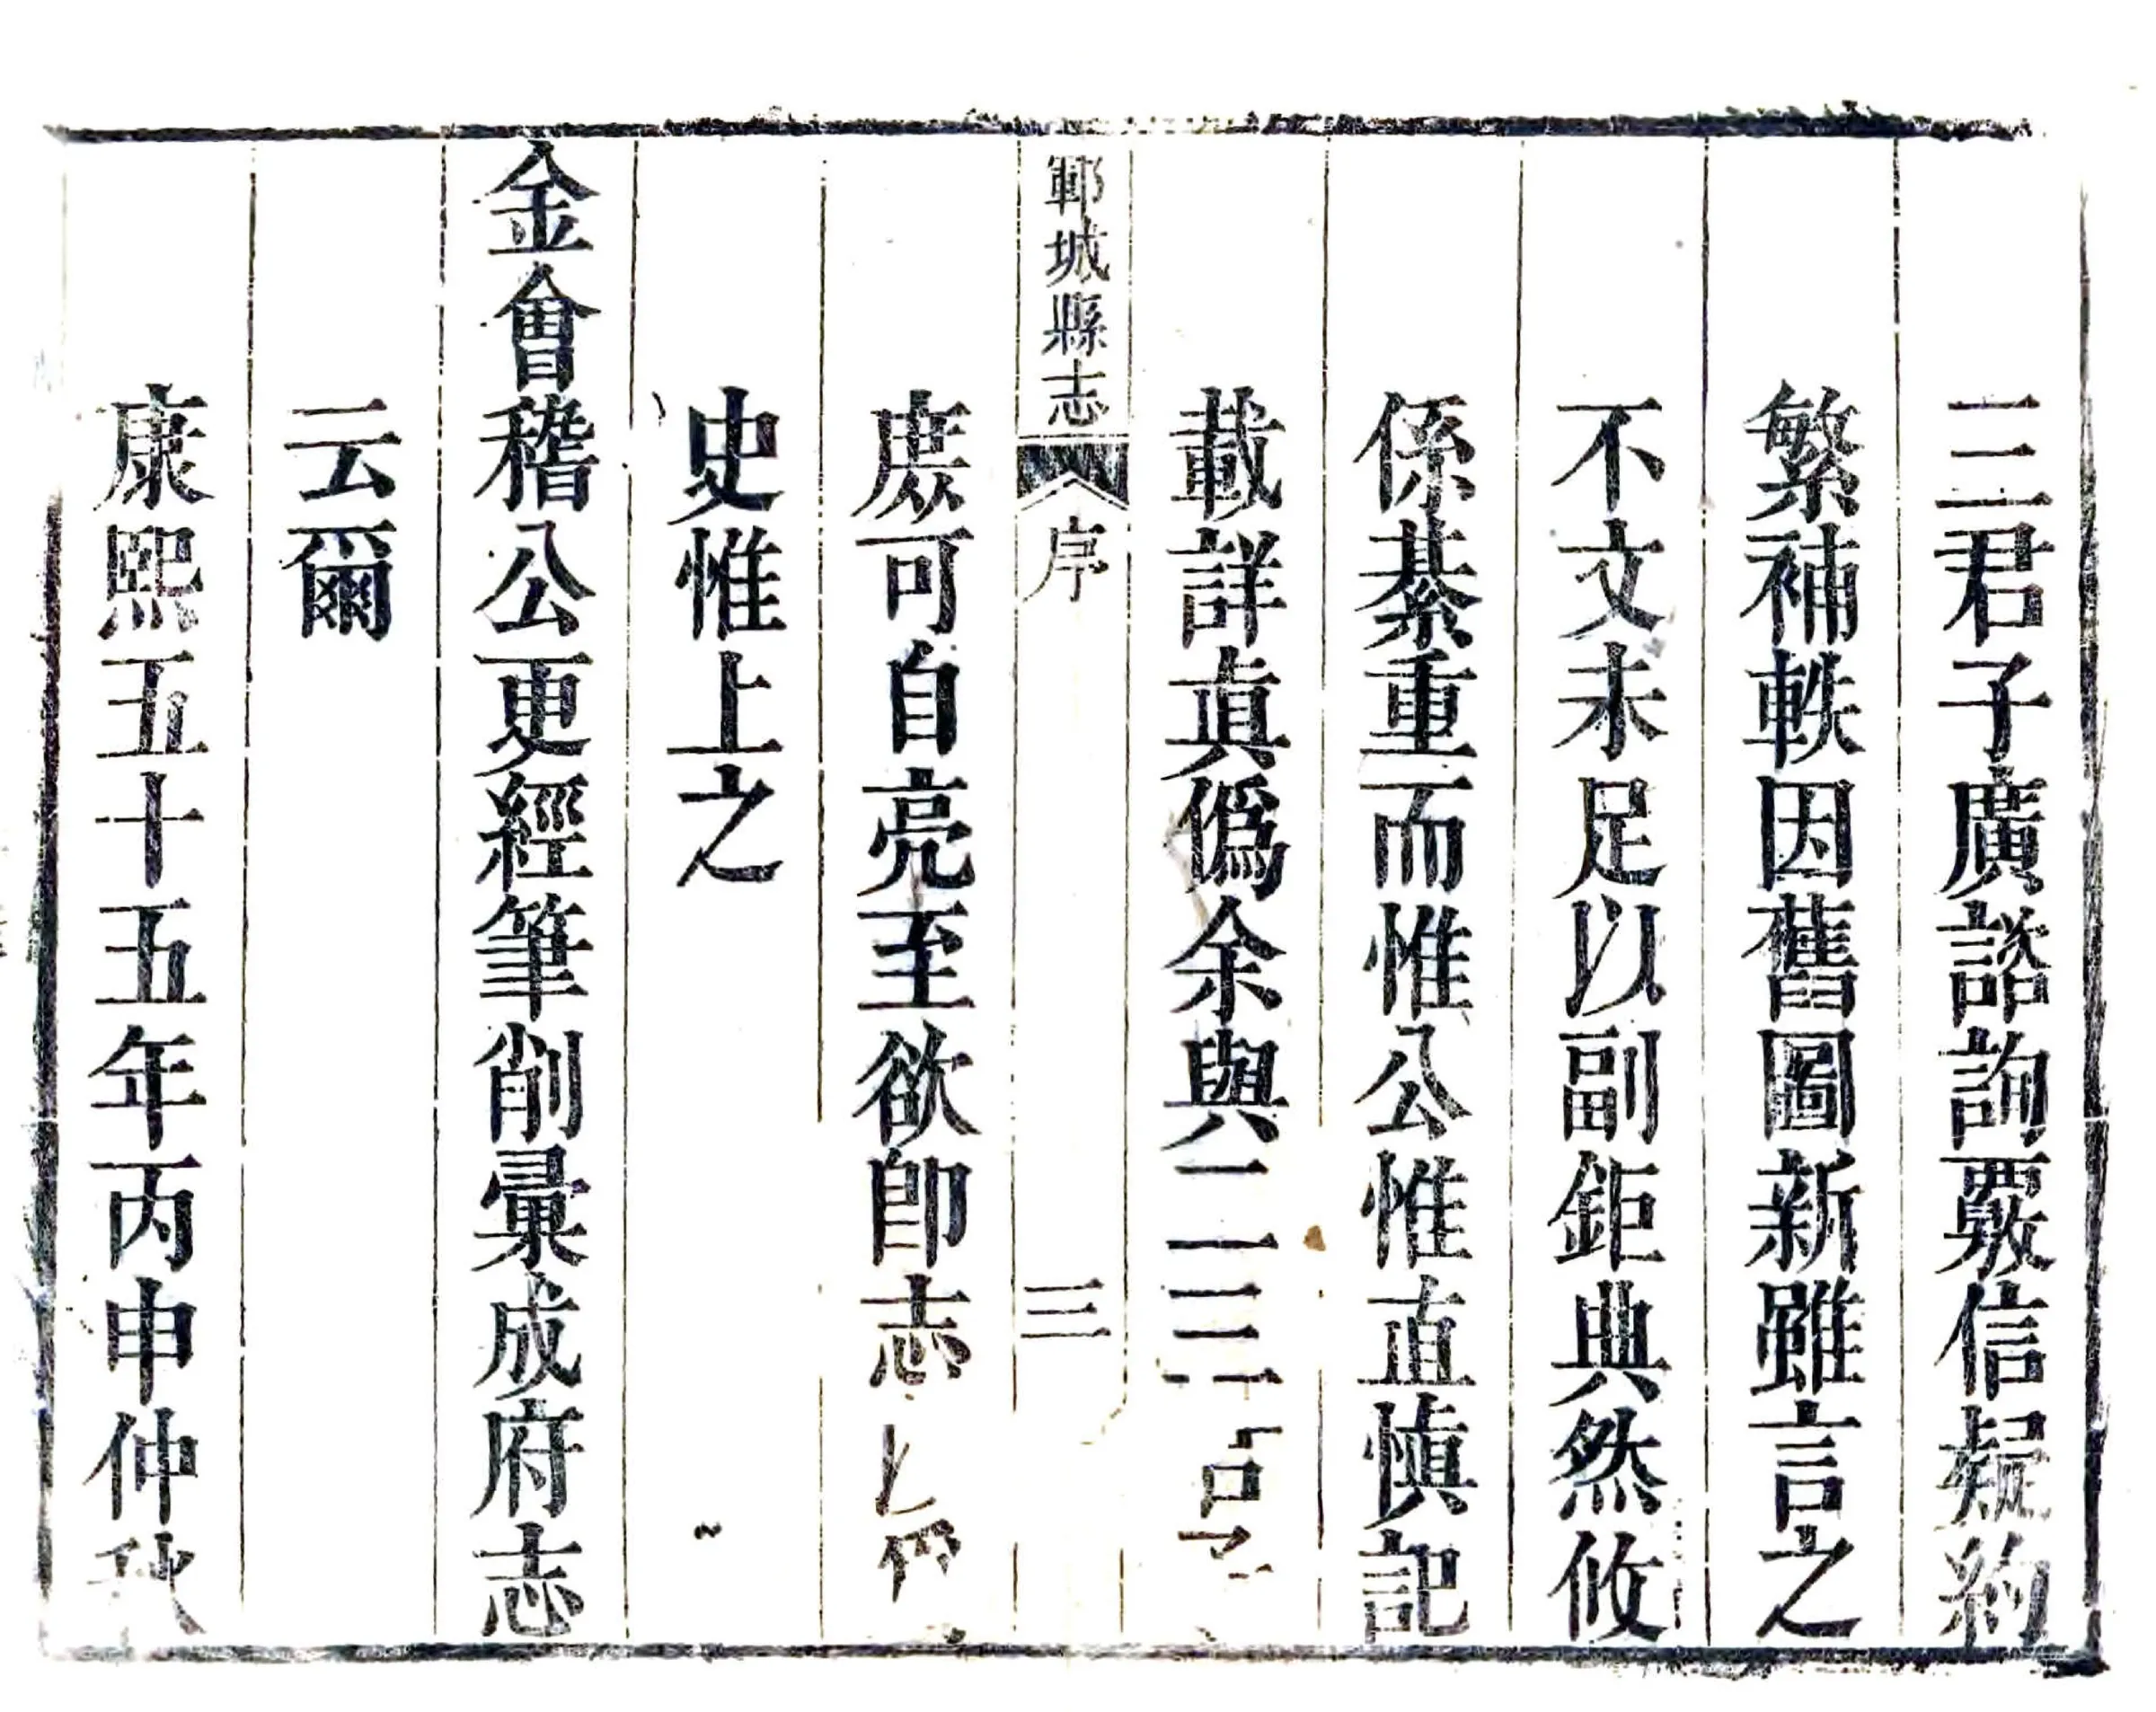 三君子廣諮詢覈信疑約
繁補軼因舊圖新雖言之
不文未足以副鉅典然攸
係綦重而惟公惟直慎記
載詳真僞余與二三君子
鄆城縣志 序 三
庶可自亮至欲卽志
史惟上之
金會稽公更經筆削彙成府志
云爾
康熙五十五年丙申仲秋